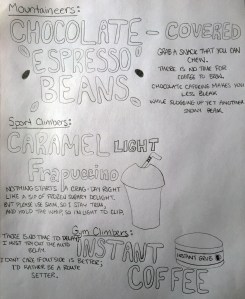 Mountaineers:
CHOCOLATE - COVERED
ESPRESSO
BEANS
GRAB A SNACK THAT YOU CAN
CHEW.
THERE IS NO TIME FOR
COFFEE TO BREW.
CHOCOLATE CAFFEINE MAKES YOU
LESS BLEAK
WHILE SLOGGING UP YET ANOTHER
SNOWY PEAK
Sport Climbers:
CARAMEL LIGHT
Frapuccino
NOTHING STARTS A CRAG-DAY RIGHT
LIKE A SIP OF FROZEN SUGARY DELIGHT.
BUT PLEASE USE SKIM, SO I STAY TRIM,
AND HOLD THE WHIP, SO I'M LIGHT TO CLIP.
Gym Climbers:
INSTANT
COFFEE
INSTANT GRUB
THERE IS NO TIME TO
I MUST TRY OUT THE AUTO
BELAY.
I DON'T CARE IF OUTSIDE IS BETTER;
I'D RATHER BE A ROUTE
SETTER.